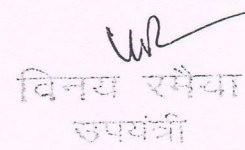 विनय रमैया
उपयंत्री